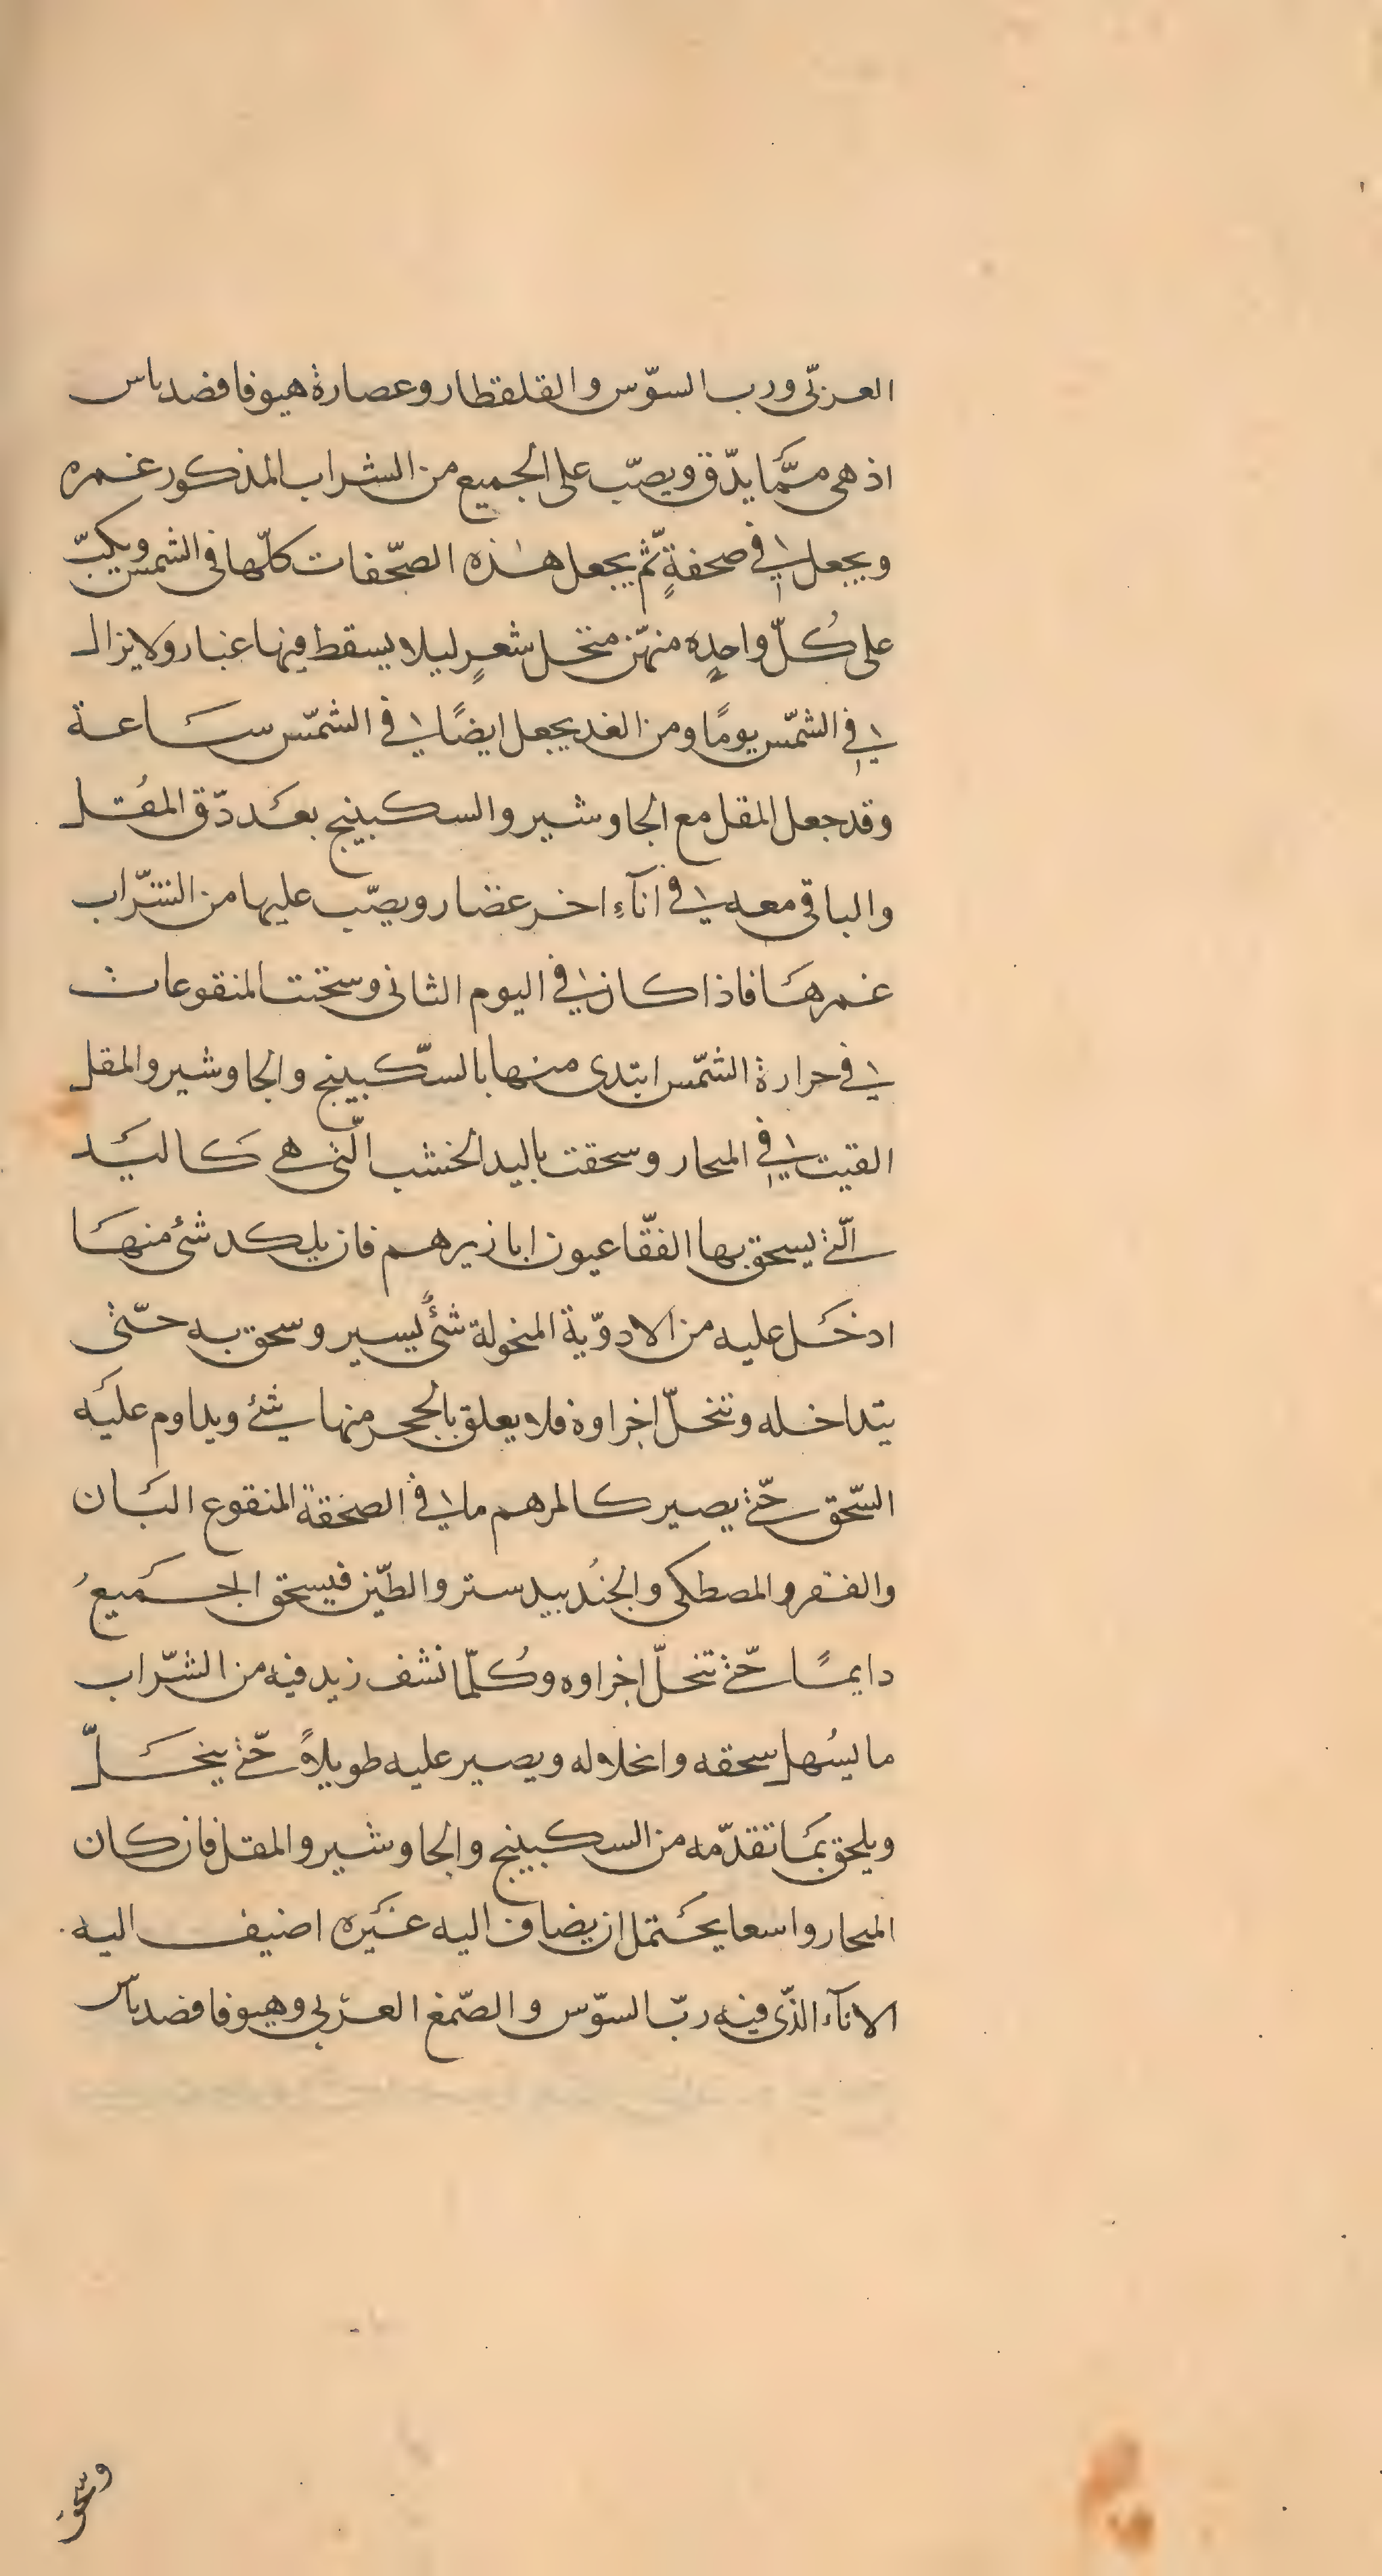 العزبّى ورب السوّس والقلقطار وعصارة هيوفا فضدباس
اذ هى ممَّا يدّق ويصبّ على الجميع من الشراب المذكور غمره
ويجعل فى صحفةٍ ثمّ يجعل هٰذه الصحّفات كلّها فى الشمس ويكبّ
على كُلّ واحدٍه منهّن منخل شعرٍ ليلا يسقط فيها غبار ولا يزال
فى الشمّس يومًا ومن الغد يجعل ايضًا فى الشمّس ساعة
وقد جعل المقل مع الجاوشير والسكبينج بعد دّق المقُل
والباقى معه فى انآءِ اخر غضار ويصّب عليها من الشرّاب
غمرها فاذا كان فى اليوم الثانى وسخنت المنقوعات
فى حرارة الشمّس ابتدى منها بالسّكبينج والجاوشير والمقل
القيت فى المحار وسحقت باليد الخشب الّتى هى كاليد
الّتى يسحق بها الفقّاعيون ابازيرهم فان يلكد شئ منها
ادخل عليه من الادوّية المنخولة شئٌ يسير وسحق به حتّى
يتداخله وتنحلّ اجراوة فلا يعلق بالحجر منها شئ ويداوم عليه
السّحق حتّى يصير كالمرهم ما فى الصحفة المنقوع البان
والفقر والمصطكى والجنُدبيدستر والطّين فيسحق الجميعُ
دايمًا حتّى تنحلّ اجراوه وكُلّما نشف زيد فيه من الشرّاب
ما يسُهل سحقه وانحلاله ويصير عليه طويلاً حتّى ينحلّ
ويلحق بما تقدّمه من السكبينج والجاوشير والمقل فان كان
المحار واسعا يحتمل ان يضاف اليه غيره اضيف اليه
الانآء الذّى فيه ربّ السوّس والصّمغ العربى وهيوفا فضدباس
وسحق